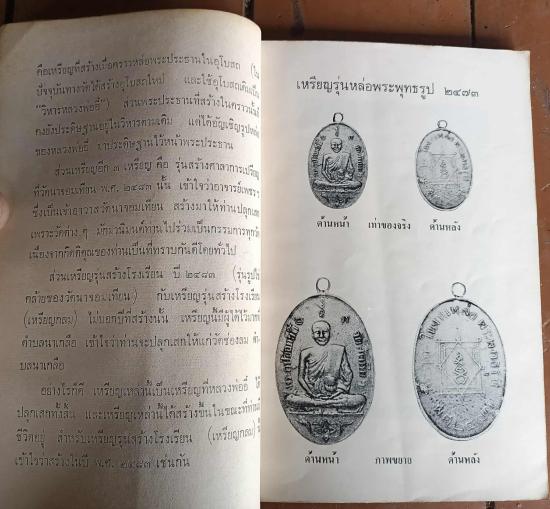 คือเหรียญที่สร้างเมื่อคราวหล่อพระประธานในอุโบสถ (ใน
ปัจจุบันทางวัดได้สร้างอุโบสถใหม่ และใช้อุโบสถเดิมเป็น
"วิหารหลวงพ่ออี๋") ส่วนพระประธานที่สร้างในคราวนั้นก็
คงยังประดิษฐานอยู่ในวิหารตามเดิม แต่ได้อัญเชิญรูปหล่อ
ของหลวงพ่ออี๋ มาประดิษฐานไว้หน้าพระประธาน
ส่วนเหรียญอีก ๓ เหรียญ คือ รุ่นสร้างศาลาการเปรียญ
ที่วัดนาจอมเทียน พ.ศ. ๒๔๘๑ นั้น เข้าใจว่าอาจารย์เพชร
ซึ่งเป็นเจ้าอาวาสวัดนาจอมเทียน สร้างมาให้ท่านปลุกเสก
เพราะวัดต่าง ๆ มักมานิมนต์ท่านไปร่วมเป็นกรรมการทุกวัด
เนื่องจากกิตติคุณของท่านเป็นที่ทราบกันดีโดยทั่วไป
ส่วนเหรียญรุ่นสร้างโรงเรียน ปี ๒๔๘๓ (รุ่นรูปไข่
คล้ายของวัดนาจอมเทียน) กับเหรียญรุ่นสร้างโรงเรียน
(เหรียญกลม) ไม่บอกปีที่สร้างนั้น เหรียญนี้มีผู้ได้ไว้มาก
ตำบลนาเกลือ เข้าใจว่าท่านจะปลุกเสกให้แก่วัดช่องลม
บลนาเกลือ
อย่างไรก็ดี เหรียญเหล่านี้เป็นเหรียญที่หลวงพ่ออี๋ ได้
ปลุกเสกทั้งสิ้น และเหรียญเหล่านี้ได้สร้างขึ้นในขณะที่ท่าน
ชีวิตอยู่ สำหรับเหรียญรุ่นสร้างโรงเรียน (เหรียญกลม)
เข้าใจว่าสร้างในปี พ.ศ. ๒๔๘๓ เช่นกัน
เหรียญรุ่นหล่อพระพุทธรูป ๒๔๗๓
ด้านหน้า เท่าของจริง ด้านหลัง
ด้านหน้า ภาพขยาย ด้านหลัง